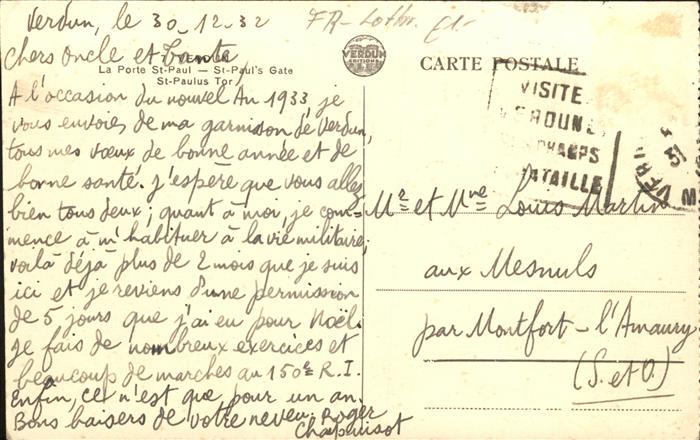 Verdun, le 30-12-32
FR-Lothr.
Chers Oncle et Tante
VERDUN
La Porte St-Paul — St-Paul's Gate
St-Paulus Tor
A l'occasion du nouvel An 1933, je
vous envoie, de ma garnison de Verdun,
tous mes vœux de bonne année et de
bonne santé. J'espère que vous allez
bien tous deux; quant à moi, je com=
mence à m'habituer à la vie militaire,
voilà déjà plus de 2 mois que je suis
ici et je reviens d'une permission
de 5 jours que j'ai eu pour Noël.
Je fais de nombreux exercices et
beaucoup de marches au 150e R.I.
Enfin, ce n'est que pour un an.
Bons baisers de votre neveu. Roger
Chapuisot
VERDUN
EDITIONS
CARTE POSTALE
VISITE
VERDUN
CHAMPS
BATAILLE
Mr et Mme Louis Martin
aux Mesnuls
par Montfort-l'Amaury
(S. et O.)